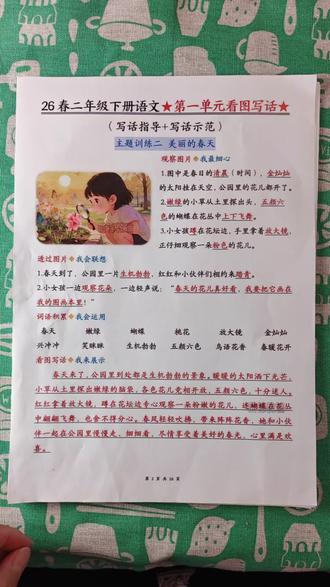 26春二年级下册语文★第一单元看图写话★
(写话指导+写话示范)
主题训练二 美丽的春天
观察图片 我最细心
1.图中是春日的清晨(时间),金灿灿
的太阳挂在天空,公园里的花儿都开了。
2.嫩绿的小草从土里探出头,五颜六
色的蝴蝶在花丛中上下飞舞。
3.小女孩蹲在花坛边,手里拿着放大镜,
正仔细观察一朵粉色的花儿。
透过图片 我会联想
1.春天到了,公园里一片生机勃勃,红红和小伙伴们相约来踏青。
2.小女孩一边观察花朵,一边轻声说:“春天的花儿真好看,我要把它画在
我的图画本里!”
词语积累 我会运用
春天 嫩绿 蝴蝶 桃花 放大镜 金灿灿
兴冲冲 笑眯眯 生机勃勃 五颜六色 鸟语花香 春暖花开
看图写话 我来展示
春天来了,公园里到处都是生机勃勃的景象。暖暖的太阳洒下光芒,
小草从土里探出嫩绿的脑袋,各色花儿竞相开放,五颜六色,十分迷人。
红红拿着放大镜,蹲在花坛边专心观察一朵粉嫩的花儿,连蝴蝶在花丛
中翩翩飞舞,也舍不得分心。春风轻轻吹拂,带来阵阵花香,她和小伙
伴一起在公园里慢慢走、细细看,尽情享受着美好的春光,心里满是欢
喜。
第 2 页 共 16 页